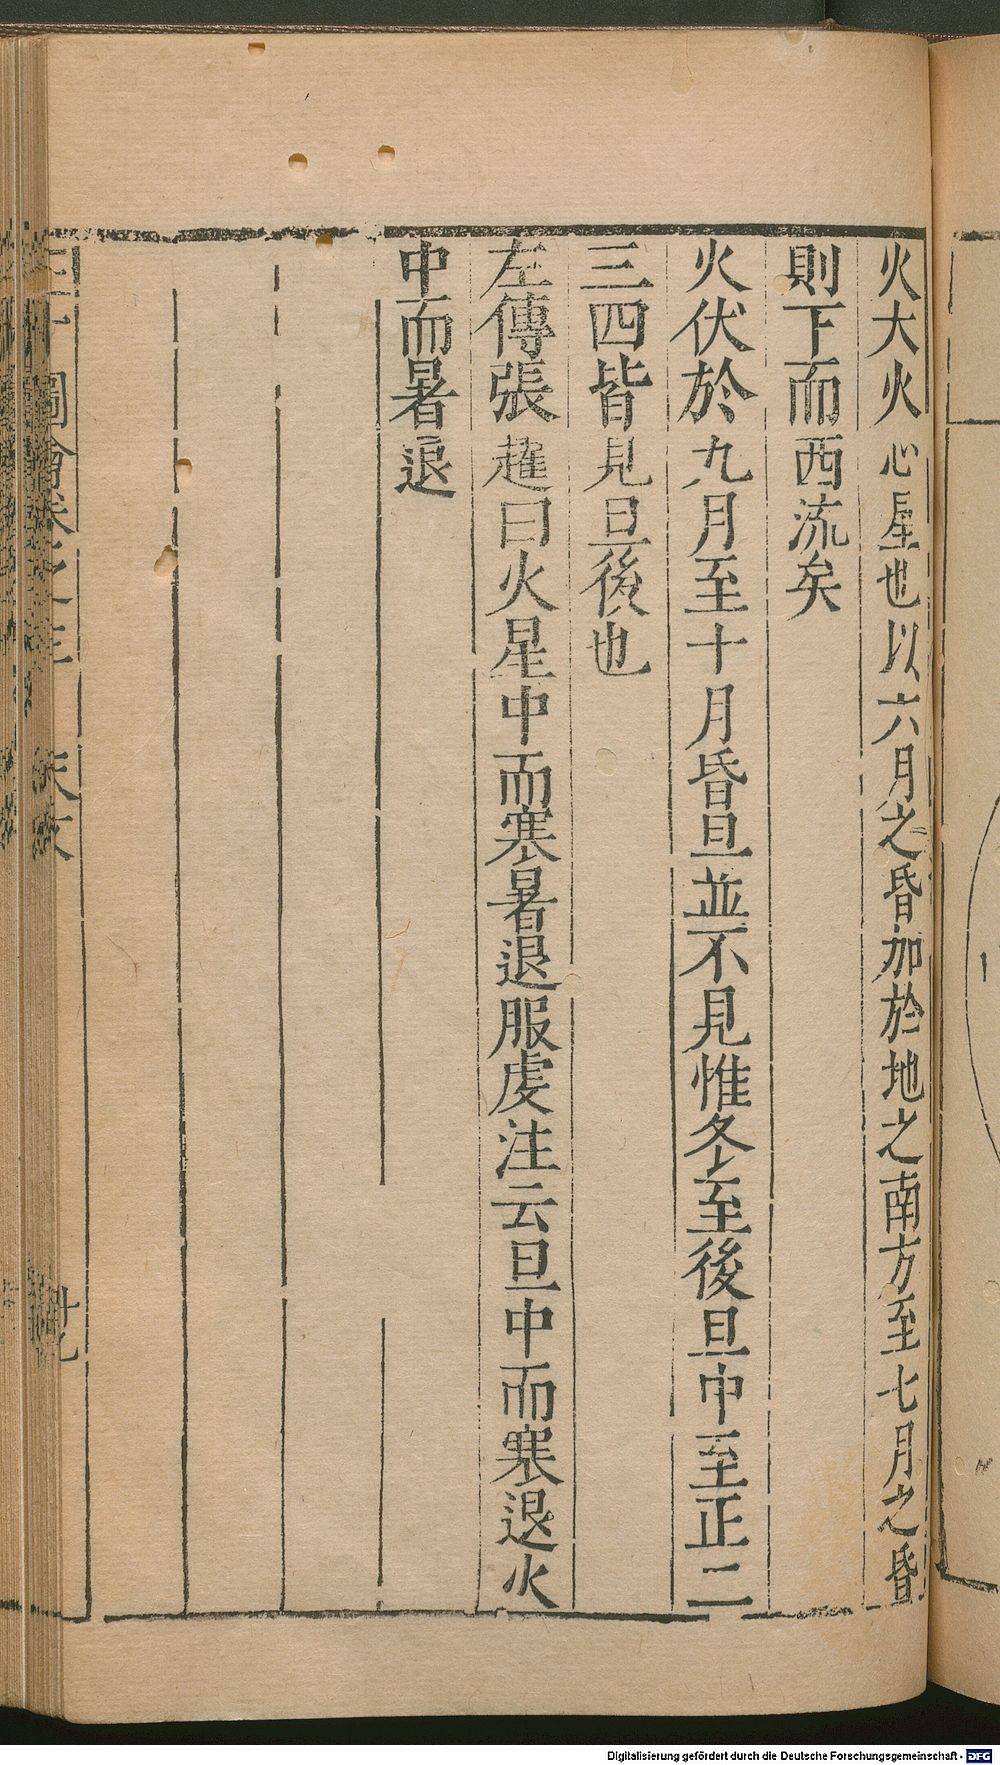 火大火心星也以六月之昏加於地之南方至七月之昏
則下而西流矣
火伏於九月至十月昏旦並不見惟冬至後旦中至正二
三四皆見旦後也
左傳張趯曰火星中而寒暑退服虔注云旦中而寒退火
中而暑退
三才圖會卷之三 天文 廿七
Digitalisierung gefördert durch die Deutsche Forschungsgemeinschaft - DFG